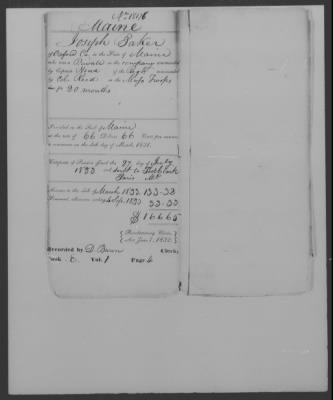 Maine
Joseph Baker
of Oxford Co. in the State of Maine
who was a Private in the company commanded
by Captain of the Regt commanded
by Col. Reed in the Mass Troops
for 20 months
Inscribed on the Roll of Maine
at the rate of 66 Dollars 66 Cents per annum
to commence on the 4th day of March, 1831.
Certificate of Pension issued the 27 day of July
1833 and sent to
Paris Me
Arrears to the 4th of March 1833 133.33
Semi-anl. allowance ending 4 Sep. 1833 33.33
$166.65
Revolutionary Claim,
Act June 7, 1832.
Recorded by D. Brown Clerk,
Book Vol. 1 Page 6